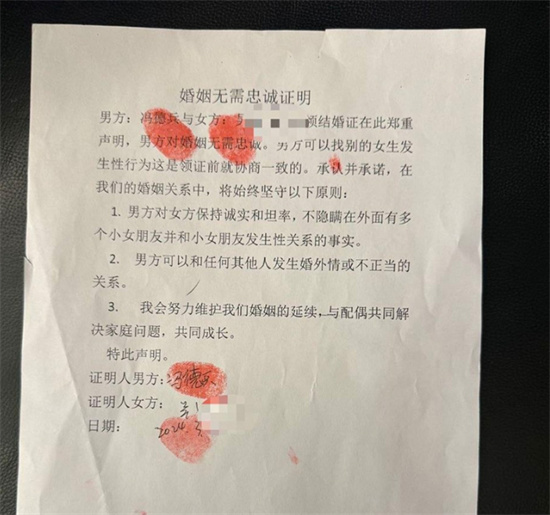 婚姻无需忠诚证明
男方：冯德兵与女方：领结婚证在此郑重
声明，男方对婚姻无需忠诚。男方可以找别的女生发
生性行为这是领证前就协商一致的。承认并承诺，在
我们的婚姻关系中，将始终坚守以下原则：
1. 男方对女方保持诚实和坦率，不隐瞒在外面有多
个小女朋友并和小女朋友发生性关系的事实。
2. 男方可以和任何其他人发生婚外情或不正当的
关系。
3. 我会努力维护我们婚姻的延续，与配偶共同解
决家庭问题，共同成长。
特此声明。
证明人男方：冯德兵
证明人女方：
日期：2024